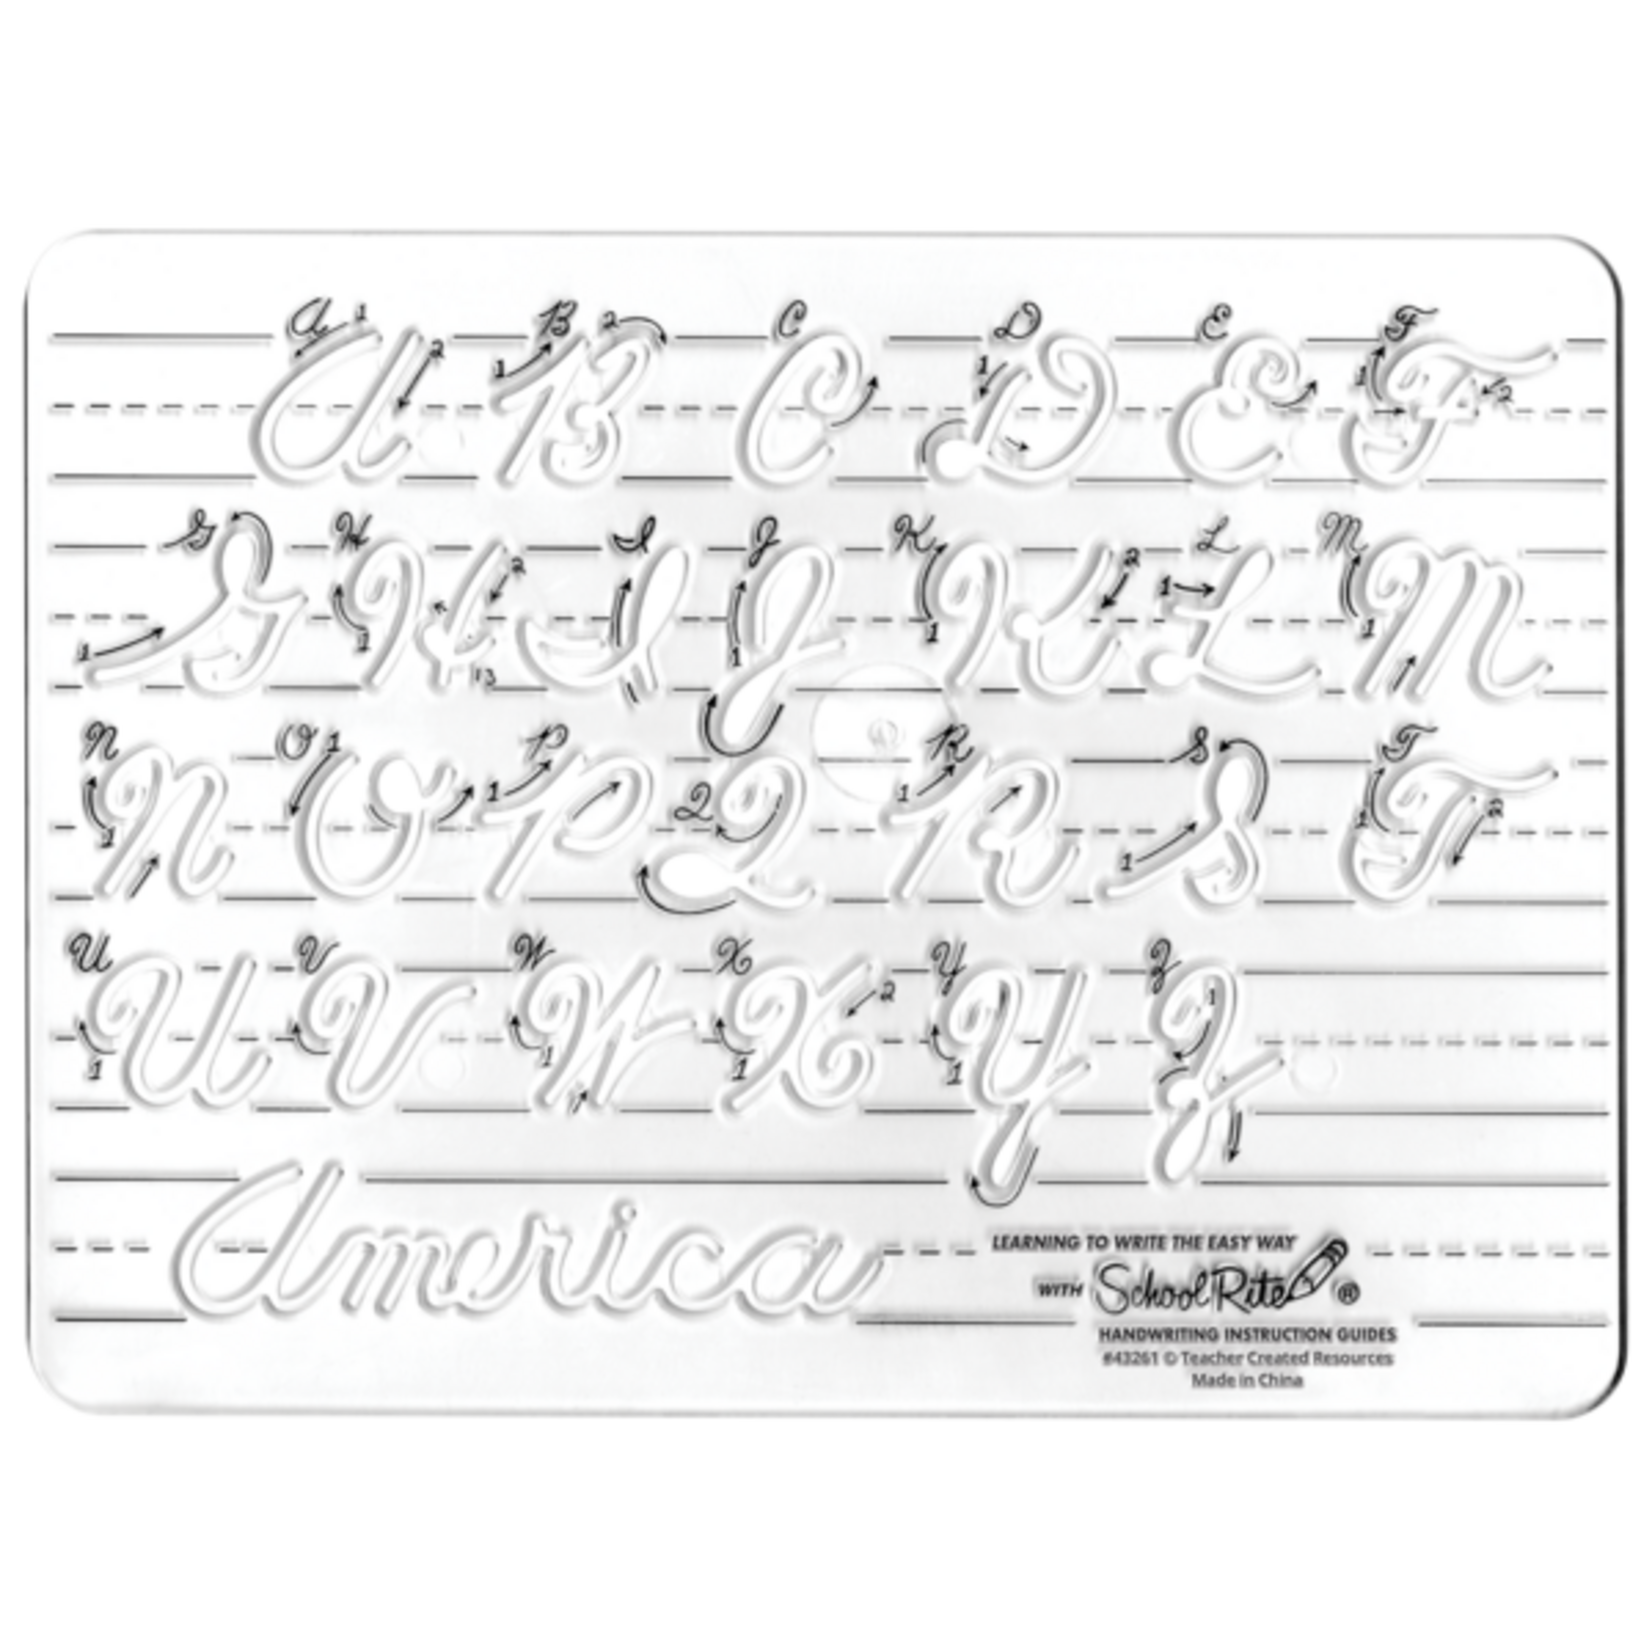 A B C D E F
G H I J K L M
N O P Q R S T
U V W X Y Z
America
LEARNING TO WRITE THE EASY WAY
WITH SchoolRite®
HANDWRITING INSTRUCTION GUIDES
#43261 © Teacher Created Resources
Made in China